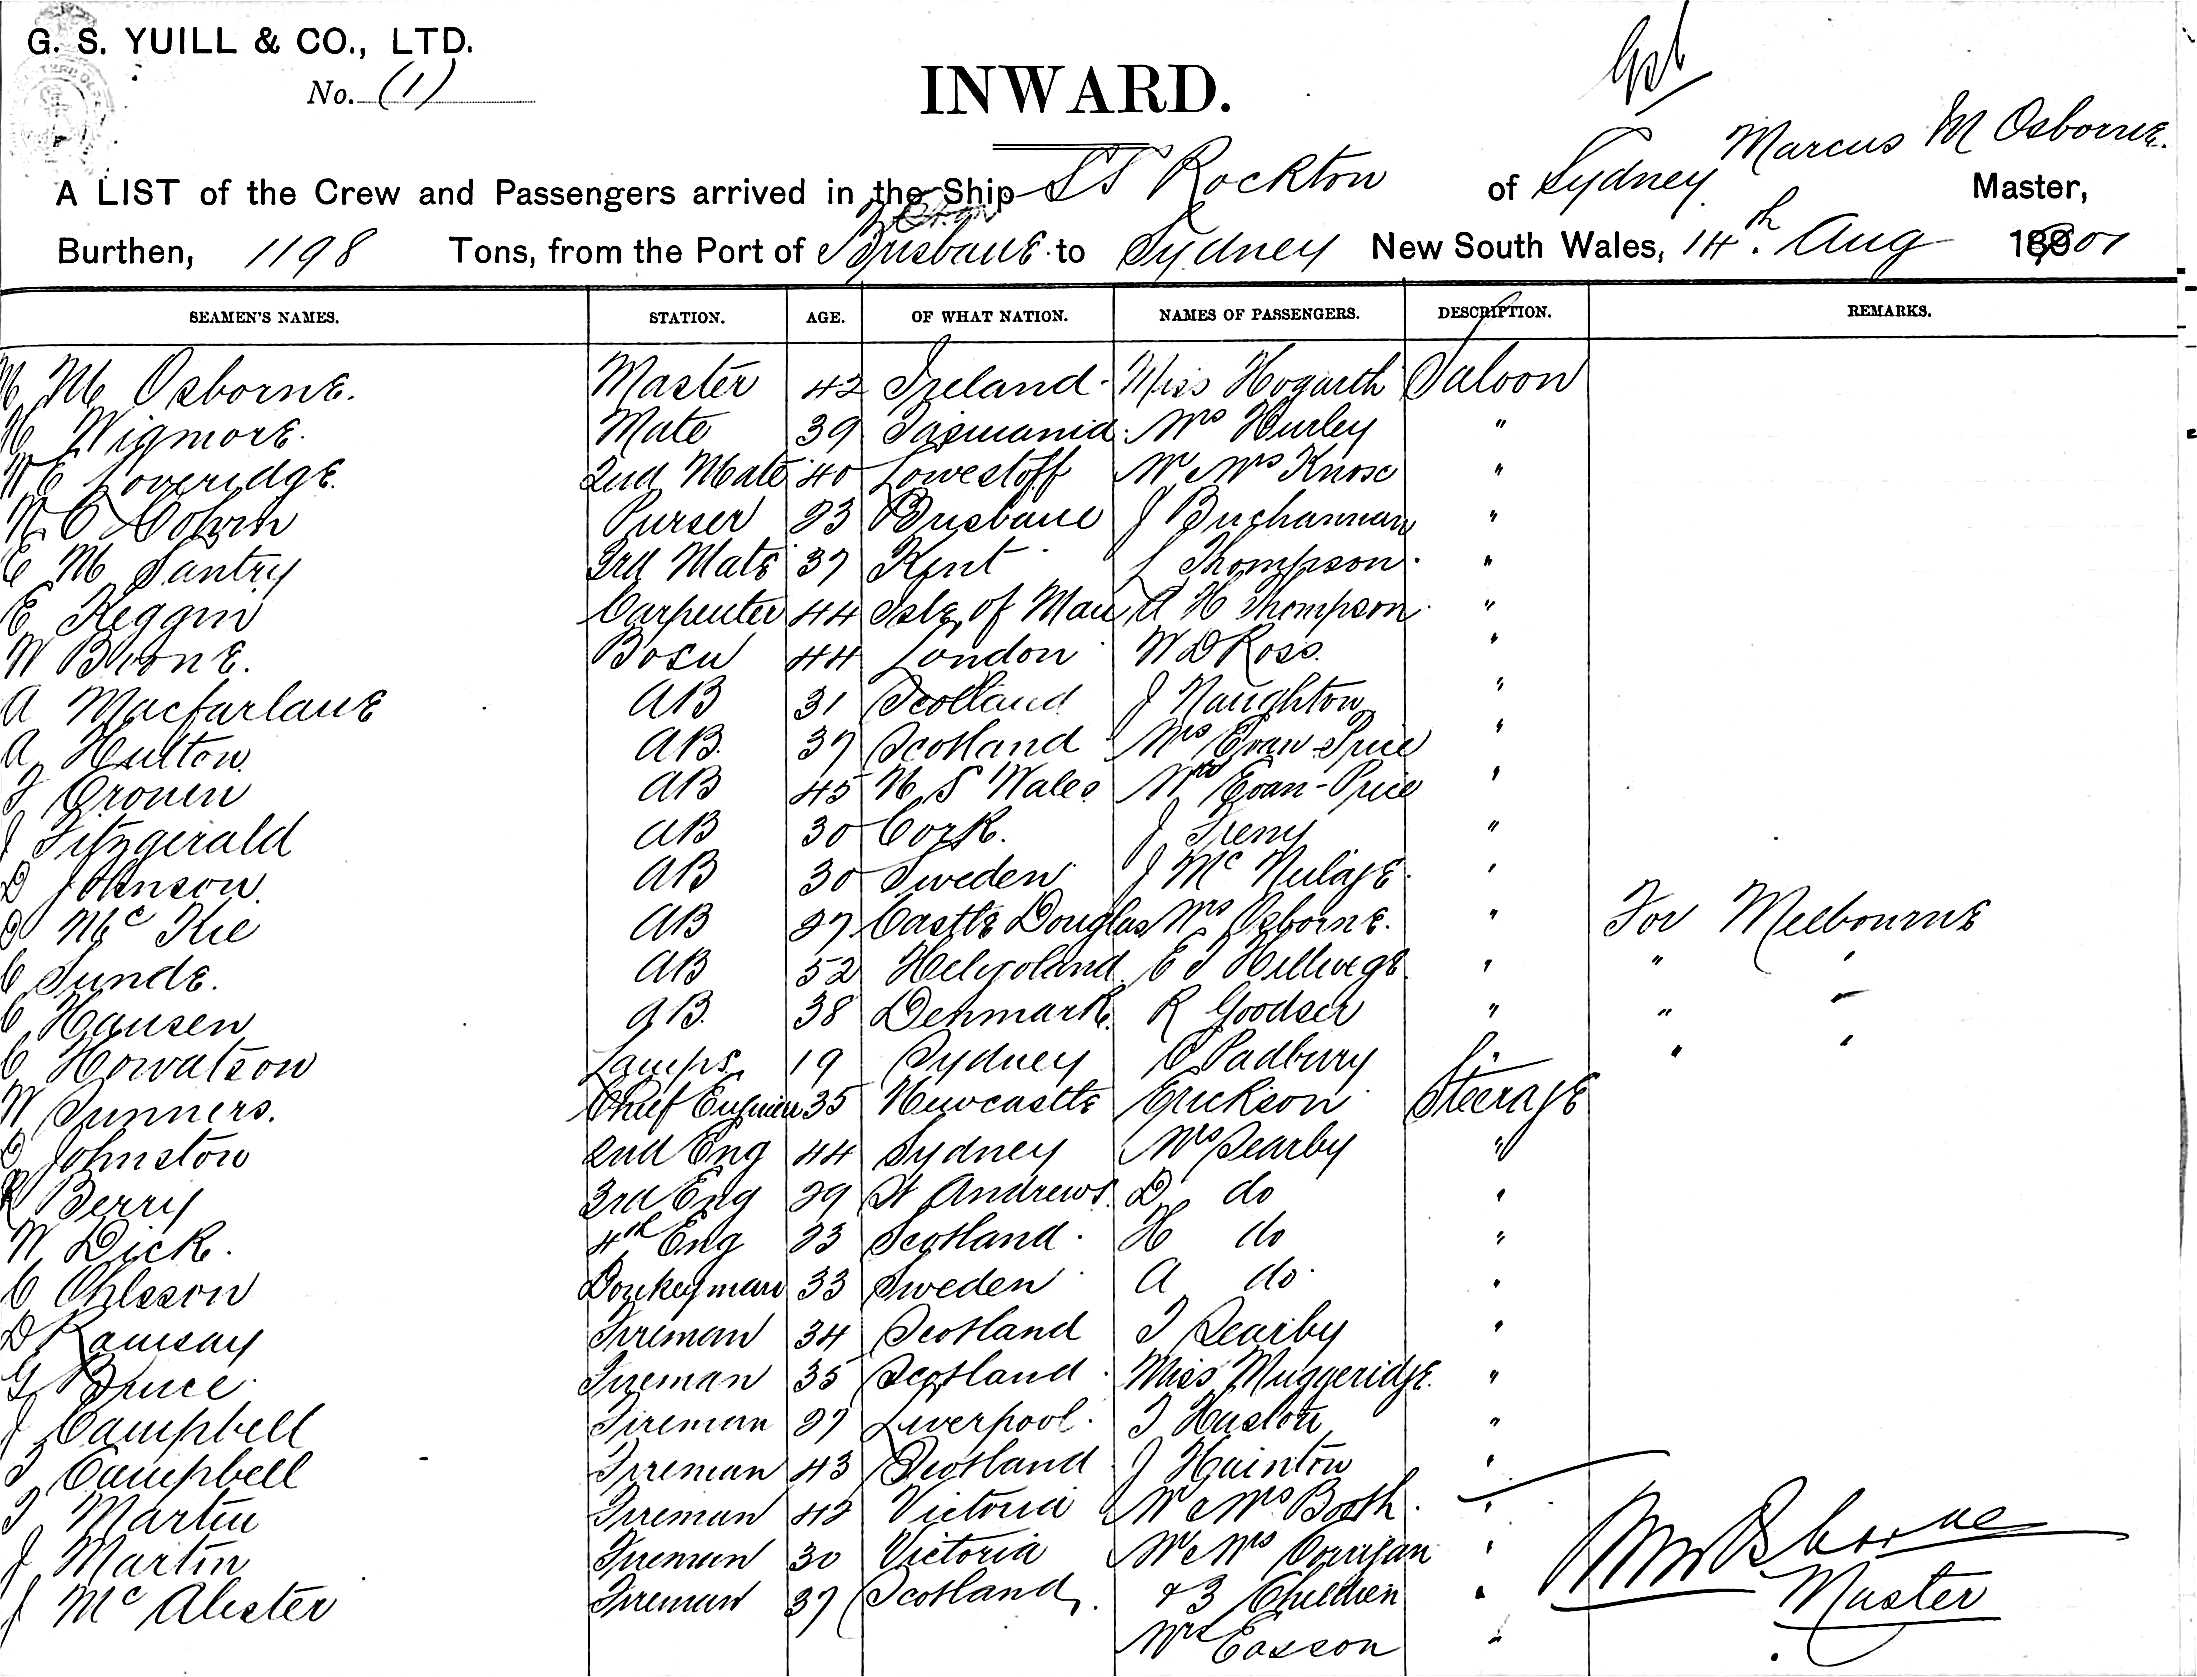 G. S. YUILL & CO., LTD.
No. (1)
INWARD.
Marcus M Osborne.
A LIST of the Crew and Passengers arrived in the Ship SS Rockton of Sydney Master,
Burthen, 1198 Tons, from the Port of Brisbane to Sydney New South Wales, 14th. Aug 1901
SEAMEN'S NAMES. STATION. AGE. OF WHAT NATION. NAMES OF PASSENGERS. DESCRIPTION. REMARKS.
M M Osborne. Master 42 Ireland Miss Hogarth Saloon
H Wigmore. Mate 39 Tasmania Mrs Hurley "
W E Loveridge. 2nd Mate 40 Lowestoff Mr & Mrs Knox "
Purser 23 Brisbane J Buchannan "
E M Santry 3rd Mate 37 Kent L Thompson "
E Keggin Carpenter 44 Isle of Man A H Thompson "
W Boone. Bosn 44 London W D Ross. "
A Macfarlane AB 31 Scotland J Naughton "
A Hutton. AB. 37 Scotland Mrs Evan Price "
Cronin AB 45 N S Wales Mr Evan-Price "
J Fitzgerald AB 30 Cork. J "
D Johnson. AB 30 Sweden J Mc "
Mc Kie AB 27 Castle Douglas Mrs Osborne. " For Melbourne
C Sunde. AB 52 Heligoland E J Hillwege " " "
C Hansen AB. 38 Denmark. R " " "
C Howatson Lamps 19 Sydney C Padbury " " "
W Sunners. Chief Engineer 35 Newcastle Erickson Steerage
Johnston 2nd Eng 44 Sydney Mrs Searby "
R Berry 3rd Eng 29 St Andrews. D do "
W Dick. 4th Eng 23 Scotland. H do "
C Ohlsson Donkeyman 33 Sweden A do "
D Ramsay Fireman 34 Scotland T Searby "
G Bruce Fireman 35 Scotland Miss Muggeridge. "
J Campbell Fireman 27 Liverpool. T "
T Campbell Fireman 43 Scotland J Hainton "
T Martin Fireman 42 Victoria Mr & Mrs Booth. "
J Martin Fireman 30 Victoria Mr & Mrs Corrigan "
J Mc Alister Fireman 37 Scotland & 3 Children "
Mrs Easson "
MM Osborne
Master